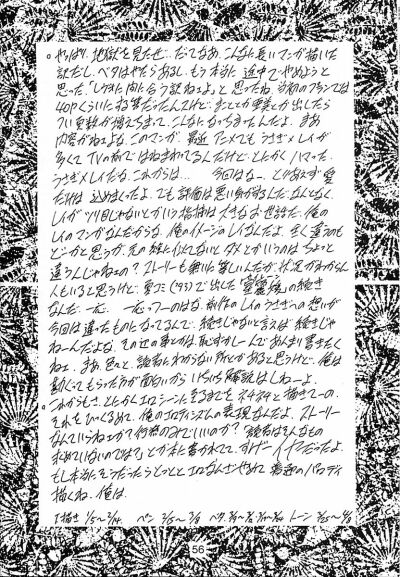 。やっぱり、地獄を見たぜ…。だってなあ、こんなに長いマンガ描いた
訳だし、ベタはやたらあるし、もう本当に途中でやめようと
思った。「レイに間に合う訳ねぇよ」と思ったね。当初のプランでは
40Pくらいになる筈だったんだけど、
つい頁数が増えちまって、こんなになっちまったんだよ。まあ
内容がねぇよな、このマンガ。最近アニメでもうさぎ×レイが
多くてTVの前ではねまわってるんだけど、とにかくハマった。
うさぎ×レイだな、これからは…。今回はなー、とりあえず愛
だけは込めまくったよ。でも評価は悪い気がするんだ、なんとなく。
レイがツリ目じゃないとかいう指摘は大きなお世話だ。俺の
レイのマンガなんだからな、俺のイメージのレイなんだよ。全く違うもの
どーかと思うが、元の絵に似てないとダメとかいうのはちょっと
違うんじゃねぇの？ストーリーも無いに等しいんだが、状況がわからん
人もいると思うけど、夏コミ('93)で出した
なんだ、一応。一応っつーのはな、前作のレイのうさぎへの想いが
今回は違ったものになってるんで、続きじゃないと言えば続きじゃ
ねーんだよな。その辺の事とかは恥ずかしーんであんまり書きたく
ねぇ。まあ色々と、読者にわからない所とかあると思うけど、俺は
勘ぐってもらった方が面白いからいちいち解説はしねーよ。
。これからも、とにかくエロシーンに至るまでをネチネチと描きてーの。
それをひっくるめて、俺のエロティシズムの表現なんだよ。ストーリー
なんていらねぇか？行為のみでいいのか？「読者はそんなもの
求めていないのでは？」とか本に書かれてて、すげーイヤだったよ。
もし本当にそうだったらとっととエロなんざやめて、普通のパロディ
描くね、俺は。
下描き 1/5〜2/14 ペン 2/5〜3/3 ベタ トーン
56